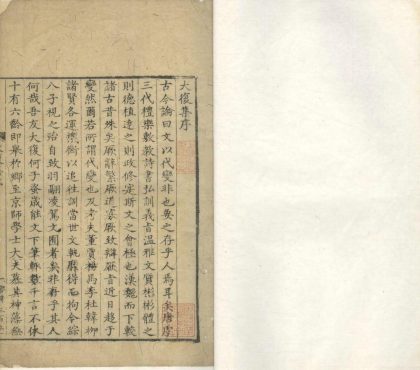 大復集序
古今論曰文以代變非也要之存乎人焉耳矣唐虞
三代禮樂敷教詩書弘訓義旨溫雅文質彬彬體之
則德植達之則政修寔斯文之會極也漢魏而下較
諸古昔殊矣厥辭繁厥道寡厥致辯厥旨近日趨于
變然爾所謂代變也及考夫董賈楊馬李杜韓柳
諸賢各運機衡以追往訓當世文執靡得而拘今綜
八子視之殆自致羽翮凌駕文囿者矣非存乎其人
何哉吾友大復何子資成能文下筆輒數千言不休
十有六齡即舉於鄉至京師學士大夫慕其神藻